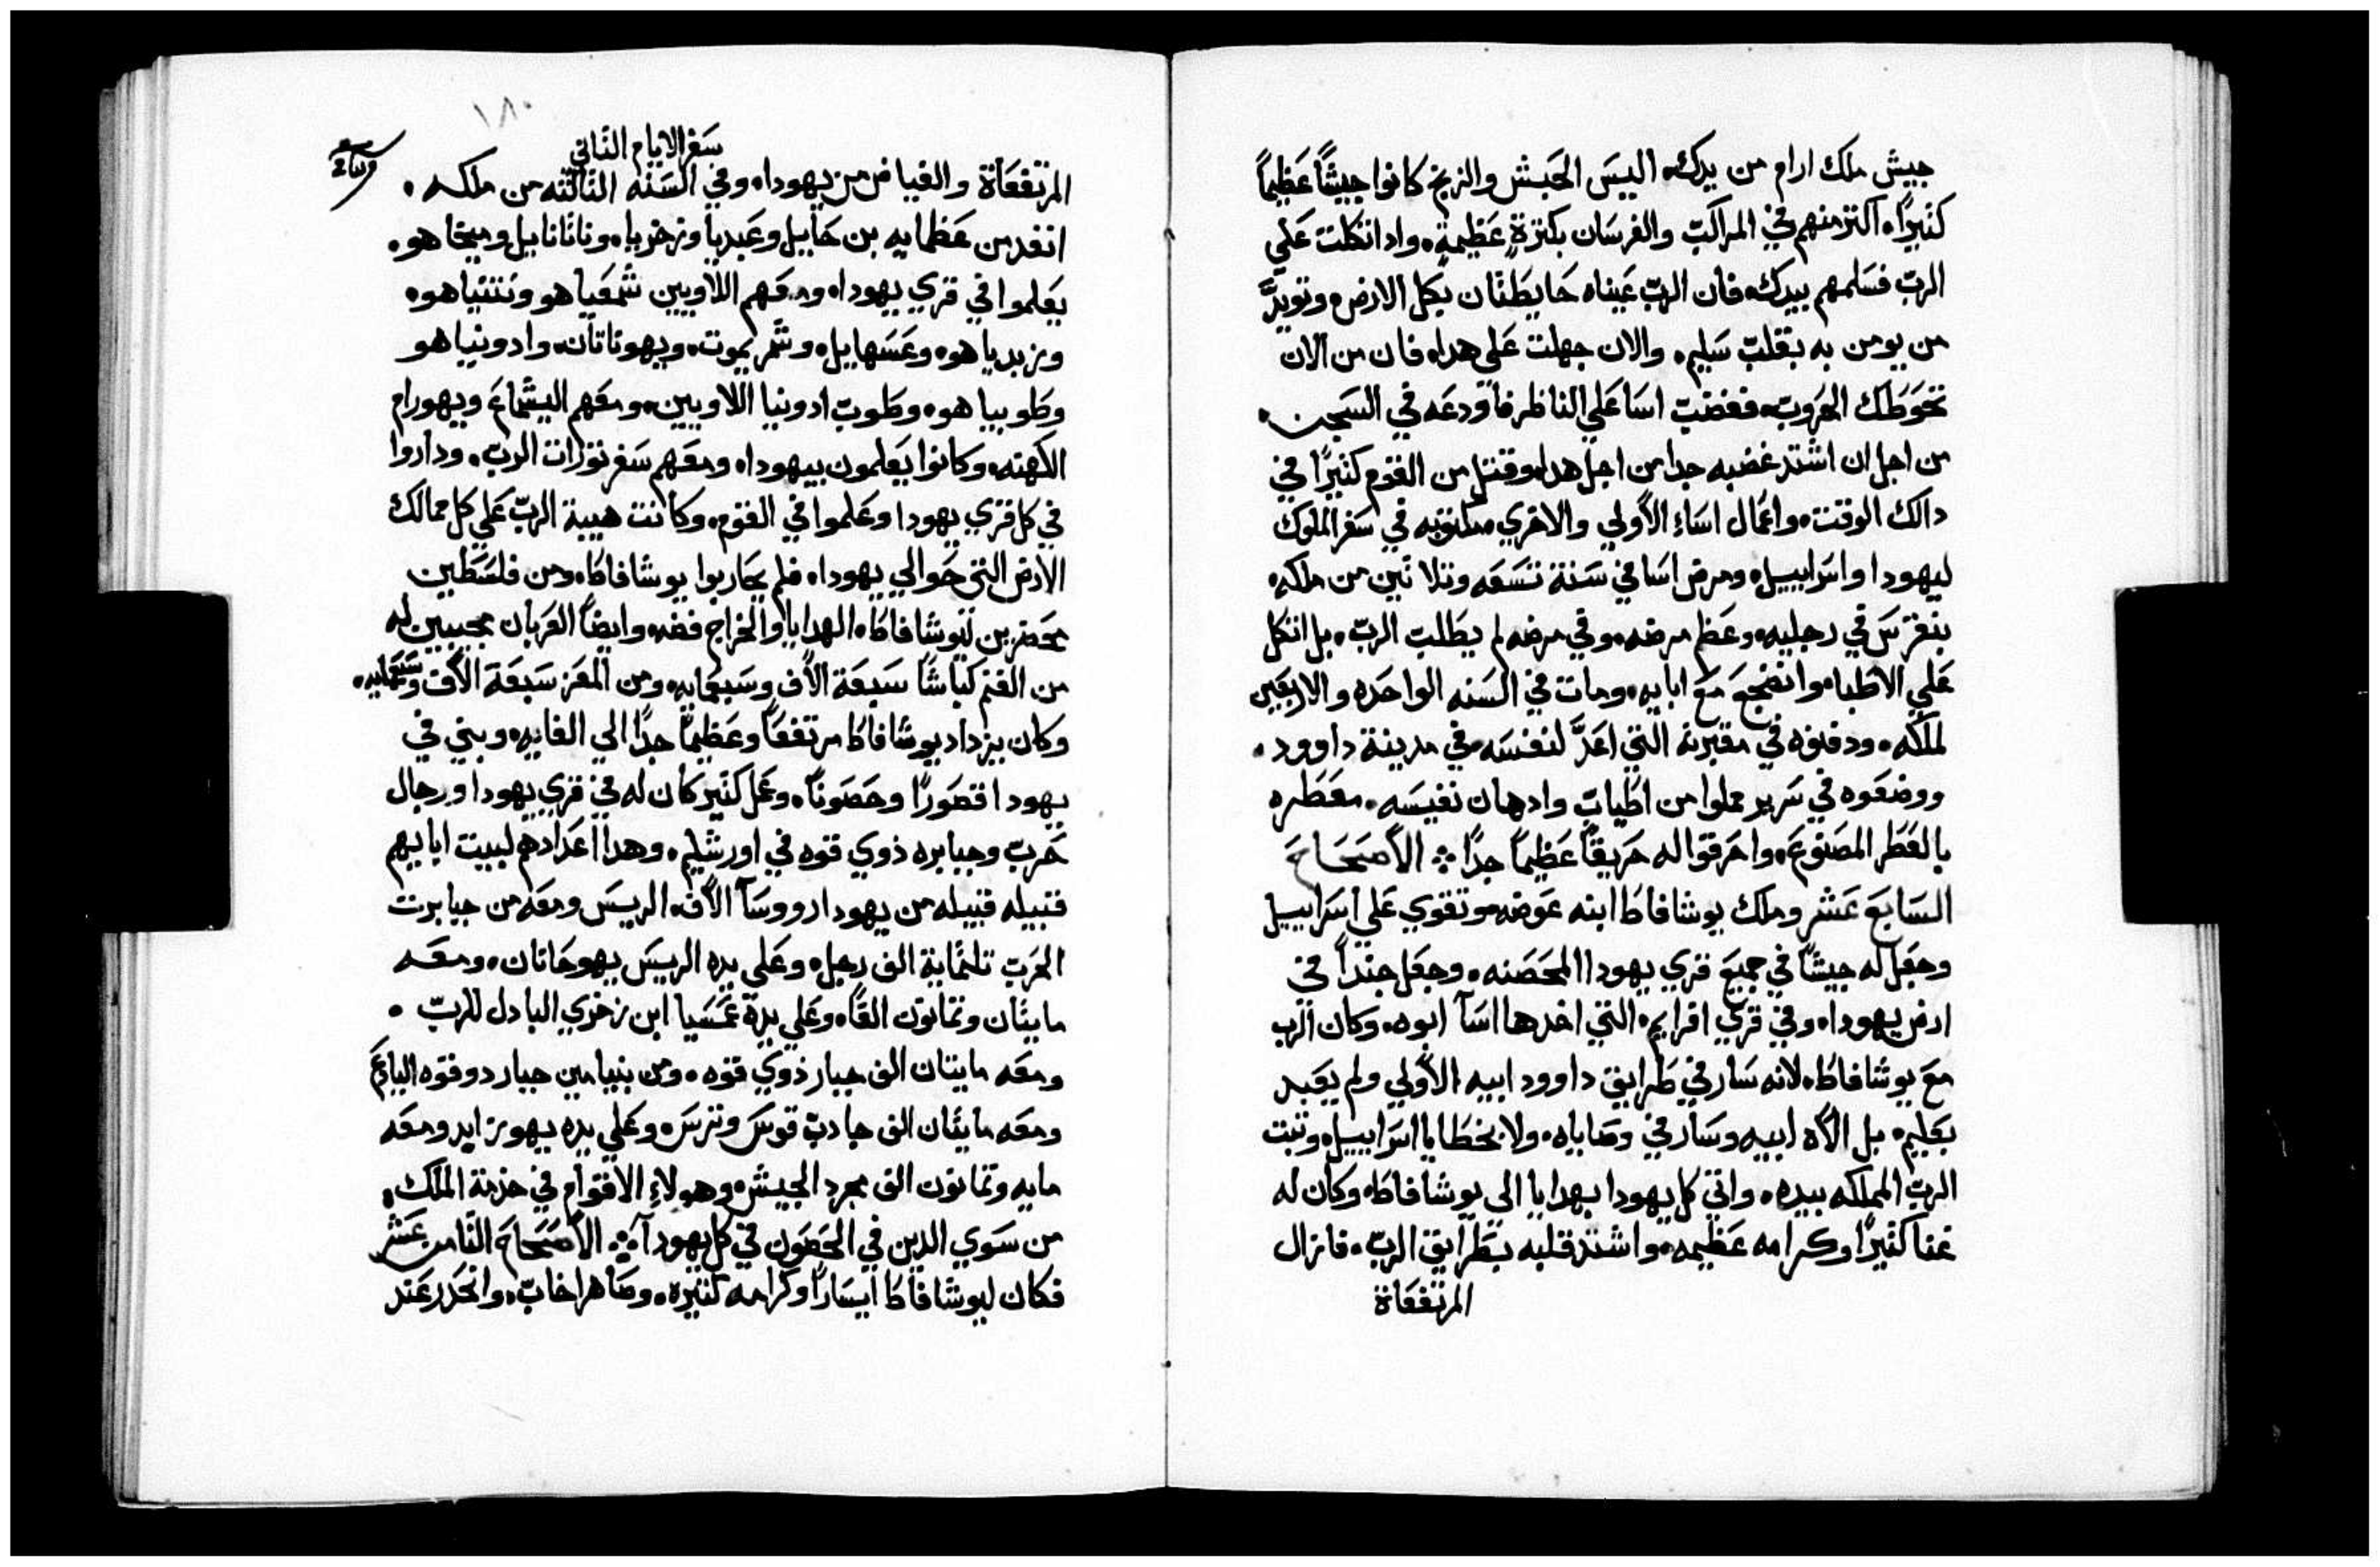 جيش ملك ارام من يدك. اليس الحبش والزنج كانوا جيشًا عظيمًا
كثيرًا. اكثر منهم في المراكب والفرسان بكثرةٍ عظيمةٍ. واد اتكلت علي
الربّ فسلمهم بيدك. فان الربّ عيناه حايطتان بكل الارض. وتويدّ
من يومن به بقلبٍ سليم. والان جهلت علي هدا. فان من الان
تحوطك الحروب. فغضب اسا علي الناظر فاودعه في السجن.
من اجل ان اشتد غضبه جدا من اجل هدا. وقتل من القوم كثيرًا في
دالك الوقت. واعمال اساء الأولي والاخري مكتوبه في سفر الملوك
ليهودا واسراييل. ومرض اسا في سنة تسعه وتلاتين من ملكه.
بنقرس في رجليه. وعظم مرضه. وفي مرضه لم يطلب الربّ. بل اتكل
علي الاطبا. وانضجع مع ابايه. ومات في السنه الواحده والاربعين
لملكه. ودفنوه في مقبرته التي اعدَّ لنفسه في مدينة داوود.
ووضعوه في سرير مملوا من اطيابٍ وادهان نفيسه. معطره
بالعطر المصنوع. واحرقوا له حريقًا عظيمًا جدًا ܀ الأصحاح
السابع عشر وملك يوشافاط ابنه عوضه. وتقوي علي اسراييل
وجعل له جيشًا في جميع قري يهودا المحصنه. وجعل جندًا في
ارض يهودا. وفي قري افرايم. التي اخدها اسآ ابوه. وكان الرب
مع يوشافاط. لانه سار في طرايق داوود ابيه الأولي ولم يعبد
بعليم. بل الاه ابيه وسار في وصاياه. ولا بخطايا اسراييل. وثبت
الربّ المملكه بيده. واتي كل يهودا بهدايا الي يوشافاط. وكان له
غنا كثيرًا وكرامه عظيمه. واشتد قلبه بطرايق الربّ. فازال
المرتفعاة
١٨٠
سفر الايام التاني
المرتفعاة والغياض من يهودا. وفي السنه التالته من ملكه.
انفد من عظمايه بن حاييل وعبديا وزخريا. وناتانايل وميخاهو.
يعلموا في قري يهودا. ومعهم اللاويين شمعياهو ونتنياهو.
وزبدياهو. وعسهاييل. وشمريموت. ويهوناتان. وادونياهو
وطوبياهو. وطوب ادونيا اللاويين. ومعهم اليشماع ويهورام
الكهنه. وكانوا يعلمون بيهودا. ومعهم سفر تورات الربّ. وداروا
في كل قري يهودا وعلموا في القوم. وكانت هيبة الربّ علي كل ممالك
الارض التي حوالي يهودا. فلم يحاربوا يوشافاط. ومن فلسطين
محضرين ليوشافاط. الهدايا والخراج فضه. وايضًا العربان مجيبين له
من الغنم كباشًا سبعة الاف وسبعمايه. ومن المعز سبعة الاف وسبعمايه.
وكان يزداد يوشافاط مرتفعًا وعظيمًا جدًا الي الغايه. وبني في
يهودا قصورًا وحصونًا. وعمل كثير كان له في قري يهودا ورجال
حرب وجبابره ذوي قوه في اورشليم. وهدا اعدادهم لبيت ابايهم
قبيله قبيله من يهودا روسآ الأف. الريس ومعه من جبابرت
الحرب تلتماية الف رجل. وعلي يده الريس يهوحانان. ومعه
مايتان وتمانون الفًا. وعلي يدة عمسيا ابن زخري البادل للربّ.
ومعه مايتان الف جبار ذوي قوه. ومن بنيامين جبار دو قوه اليادع
ومعه مايتان الف جادب قوس وترس. وعلي يده يهوزابد ومعه
مايه وتمانون الف مجرد الجيش. وهولاء الاقوام في خدمة الملك.
من سوي الدين في الحصون في كل يهودآ ܀ الأصحاح التامن عشر
فكان ليوشافاط ايسارًا وكرامه كثيره. وصاهر اخاب. وانحدر عند